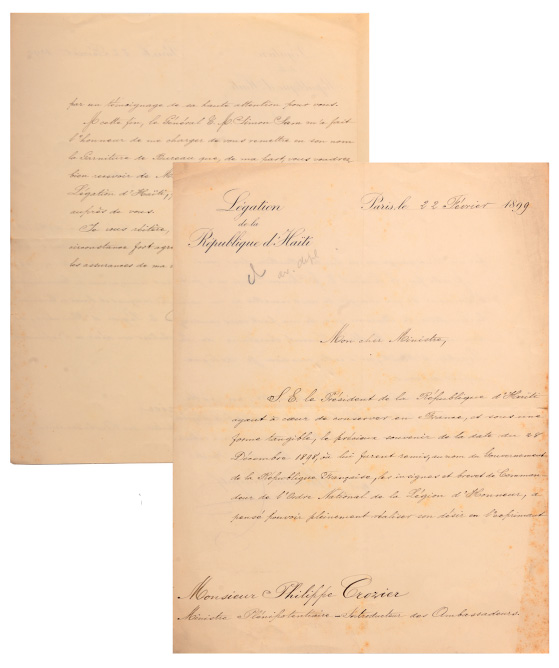 Légation
de la
République d'Haïti
Paris, le 22 Février 1899
Mon cher Ministre,
S. E. le Président de la République d'Haïti
ayant à cœur de conserver en France, et sous une
forme tangible, le précieux souvenir de la date du 28
Décembre 1898, où lui furent remis, au nom du Gouvernement
de la République Française, les insignes et brevet de Comman-
deur de l'Ordre National de la Légion d'Honneur, a
pensé pouvoir pleinement réaliser son désir en l'exprimant
Monsieur Philippe Crozier
Ministre Plénipotentiaire - Introducteur des Ambassadeurs.
par un témoignage de sa haute attention pour vous.
A cette fin, le Général T. A. Simon Sam m'a fait
l'honneur de me charger de vous remettre en son nom
la Garniture de Bureau que, de ma part, vous voudrez
bien recevoir de
Légation d'Haïti,
auprès de vous.
Je vous réitère,
circonstance fort
les assurances de ma